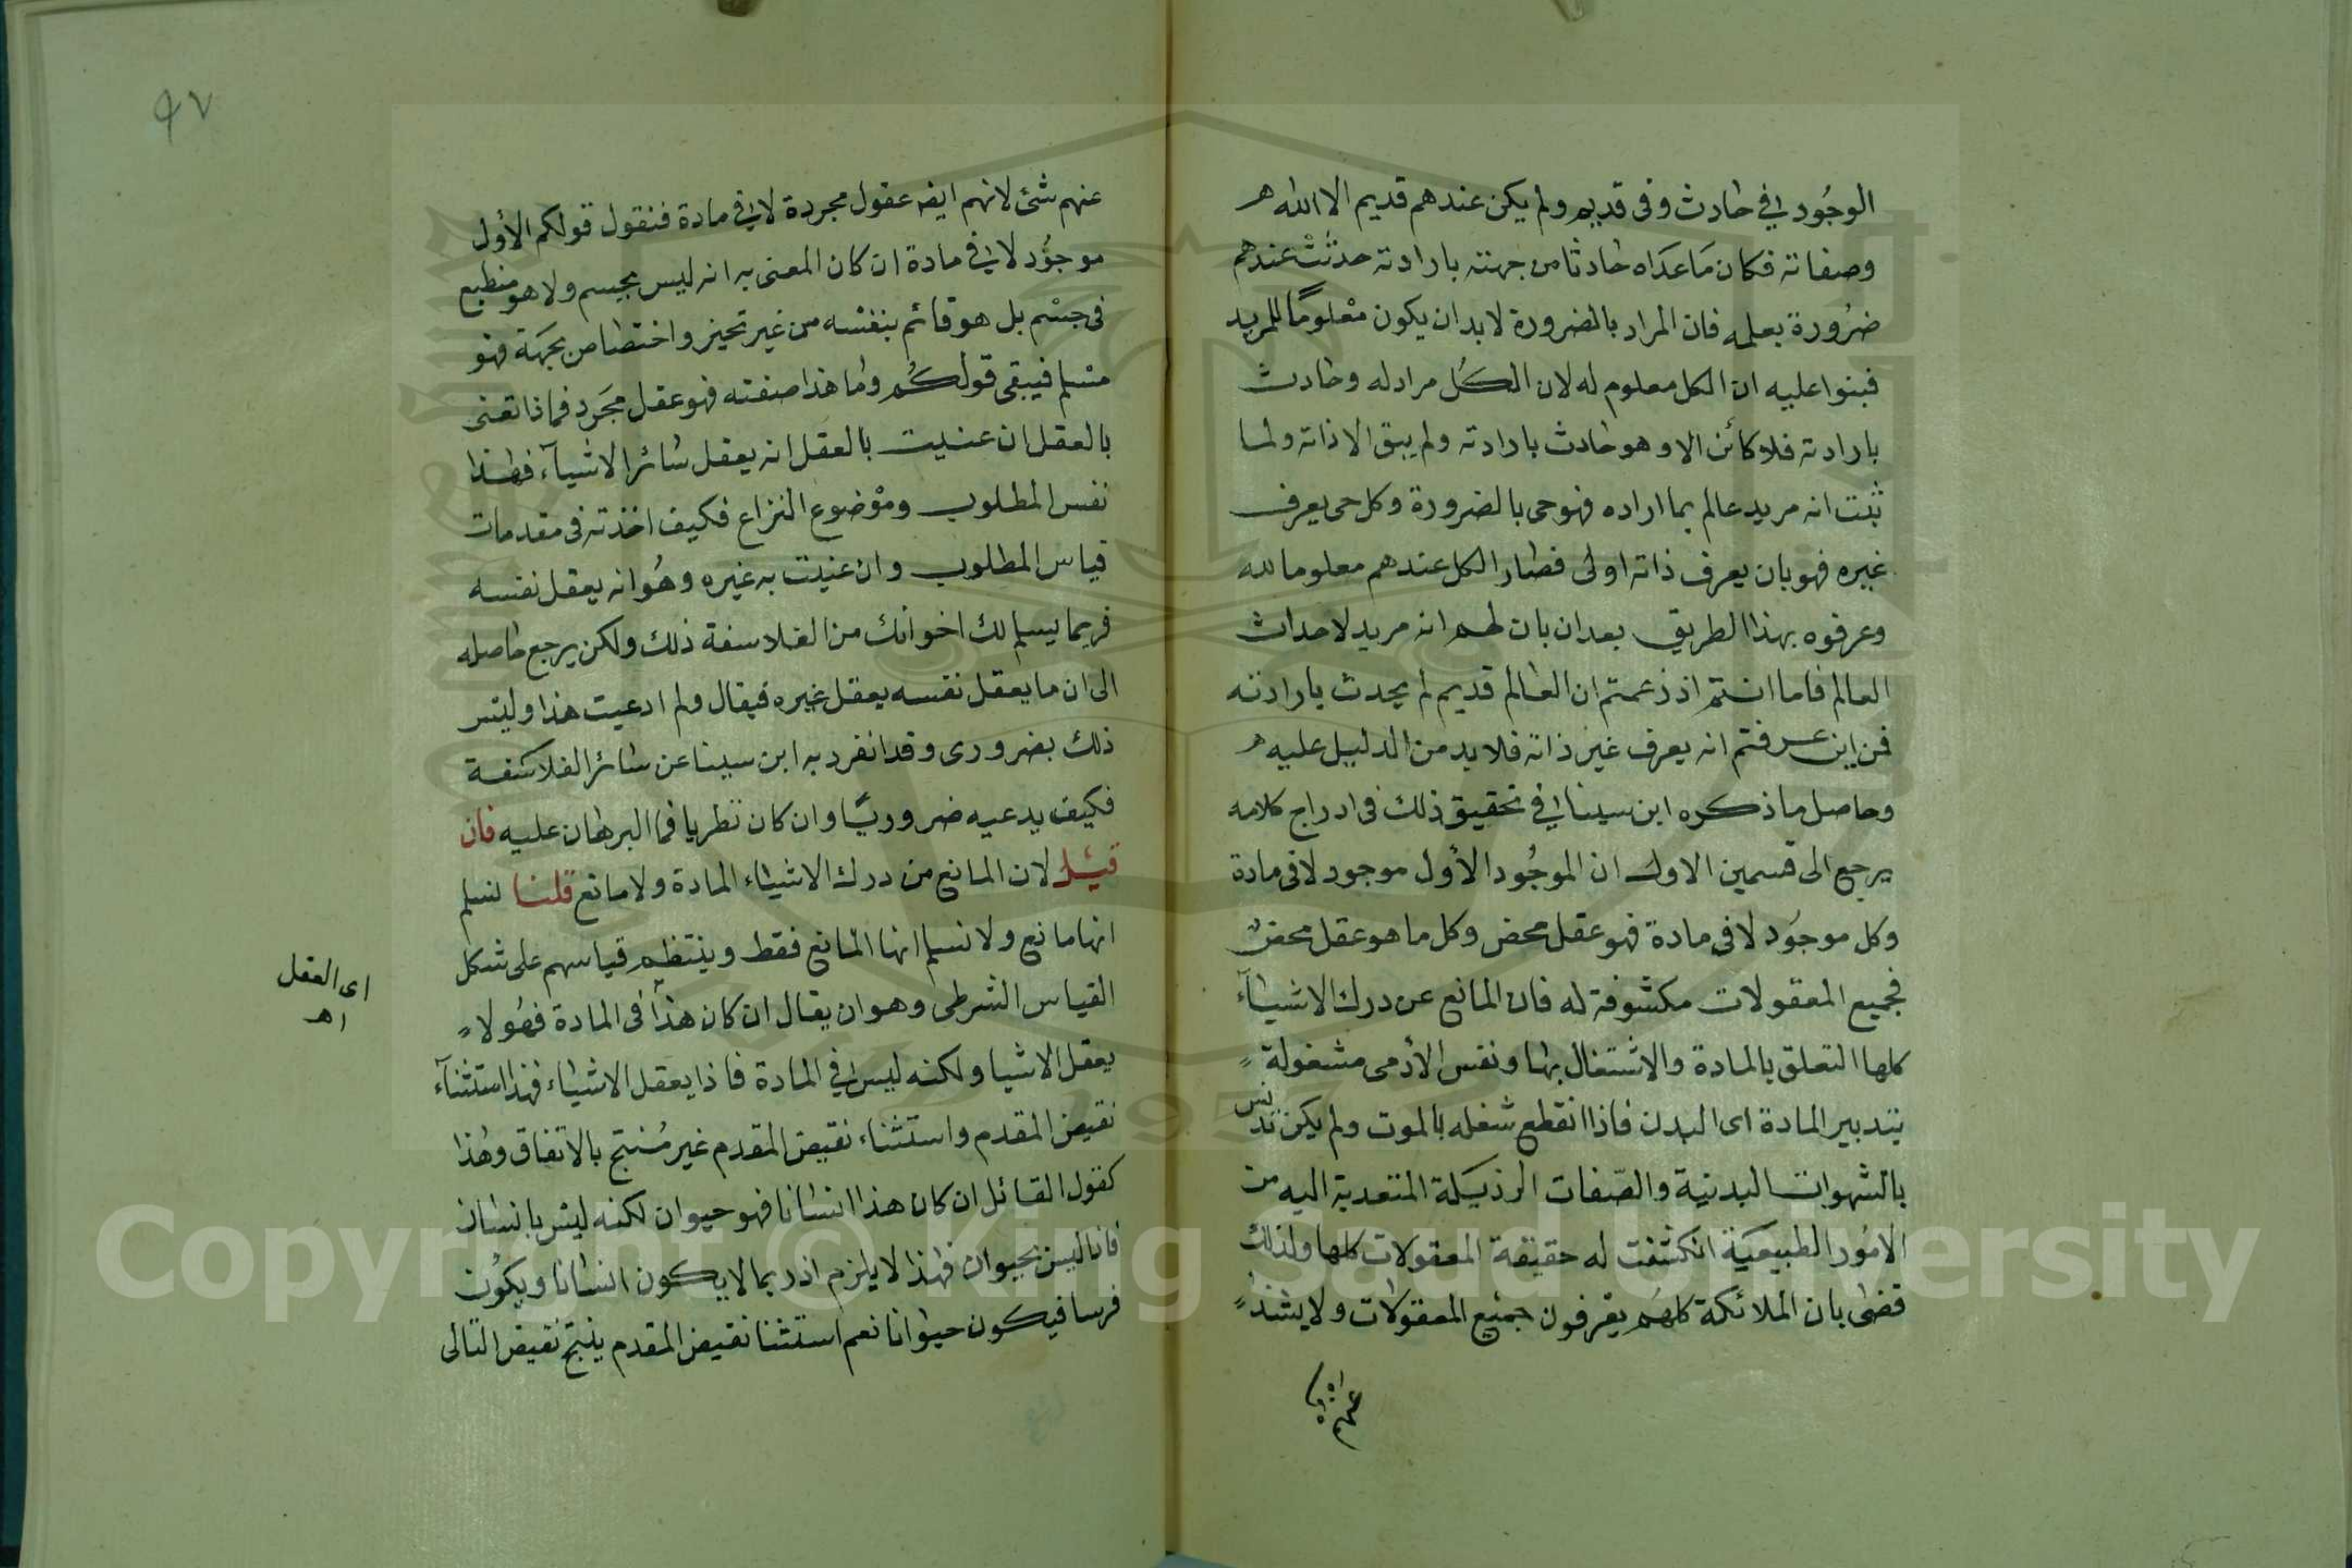 الوجُود الي في حادث وفى قديم ولم يكن عندهم قديم الا الله
وصفاته فكان مَاعَدَاه حادثا من جهته بارادته حدثتْ عندهم
ضرُورة بعلمه فان المراد بالضرورة لابد ان يكون معْلومًا للمريد
فبنوا عليه ان الكل معلوم له لان الكُل مراد له وحادث
بارادته فلا كائن الا وهو حادث بارادته ولم يبق الا ذاته ولما
ثبت انه مريد عالم بما اراده فهو حى بالضرورة وكل حى يعرف
غيره فهو بان يعرف ذاته اولى فصار الكل عندهم معلوما لله
وعرفوه بهذا الطريق بعد ان بان لهم انه مريد لاحداث
العالم فاما انتم اذ زعمتم ان العالم قديم لم يحدث بارادته
فمن اين عرفتم انه يعرف غير ذاته فلا بد من الدليل عليه
وحاصل ما ذكره ابن سينا في تحقيق ذلك فى ادراج كلامه
يرجع الى قسمين الاول ان الموجُود الأول موجود لا فى مادة
وكل موجوَد لا فى مادة فهو عقل محض وكل ما هو عقل محض
فجميع المعقولات مكشوفة له فان المانع عن درك الاشيآء
كلها التعلق بالمادة والاشتغال بها ونفس الأدمى مشغولة
بتدبير المادة اى البدن فاذا انقطع شغله بالموت ولم يكن تدنس
بالشهوات البدنية والصّفات الرذيلة المتعدية اليه من
الامُور الطبيعيَة انكشفت له حقيقة المعقولات كلها ولذلك
قضى بان الملائكة كلهَم يعرفون جميع المعقولات ولا يشذ
عنهم
٩٧
عنهم شئ لانهم ايضا عقول مجردة لا في مادة فنقول قولكم الأول
موجوُد لا في مادة ان كان المعنى به انه ليس بجسم ولا هو منطبع
فى جسْم بل هو قائم بنفسه من غير تحيز واختصاص بجهَة فهو
مسلم فيبقى قولكُم وما هذا صفته فهو عقل مجَرد فماذا تعنى
بالعقل ان عنيت بالعقل انه يعقل سائر الاشيآء فهذا
نفس المطلوب وموْضوع النزاع فكيف اخذته فى مقدمات
قياس المطلوب وان عنيت به غيره وهُوا نه يعقل نفسه
فربما يسلم لك اخوانك من الفلاسفة ذلك ولكن يرجع حاصله
الى ان ما يعقل نفسه يعقل غيره فيقال ولم ادعيت هذا وليس
ذلك بضرورى وقد انفرد به ابن سينا عن سائر الفلاسفة
فكيف يدعيه ضروريًا وان كان نظريا فما البرهان عليه فان
قيْل لان المانع من درك الاشياء المادة ولا مانع قلنا نسلم
انها مانع ولا نسلم انها المانع فقط وينتظم قياسهم على شكل
القياس الشرطى وهو ان يقال ان كان هذا فى المادة فهُو لا
يعقل الاشيا ولكنه ليس في المادة فاذا يعقل الاشياء فهذا استثنآء
نقيض المقدم واستثناء نقيض المقدم غير مُنتج بالاتفاق وهذا
كقول القائل ان كان هذا انسانا فهو حيوان لكنه ليس بانسان
فاذا ليس بحيوان فهذا لا يلزم اذ ربما لا يكون انسانا ويكوُن
فرسا فيكون حيوانا نعم استثنا نقيض المقدم ينتج نقيض التالى
اى العقل
اهـ